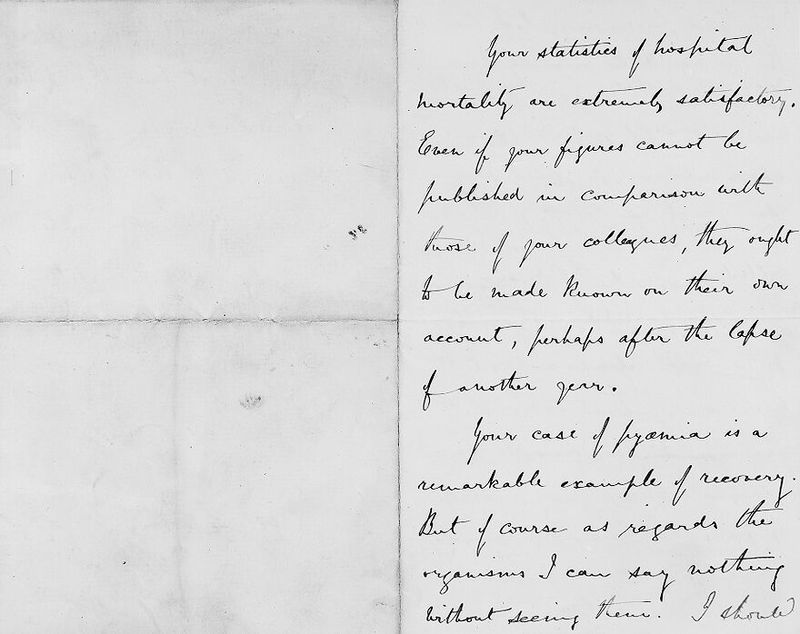 Your statistics of hospital
mortality are extremely satisfactory.
Even if your figures cannot be
published in comparison with
those of your colleagues, they ought
to be made known on their own
account, perhaps after the lapse
of another year.
Your case of pyæmia is a
remarkable example of recovery.
But of course as regards the
organisms I can say nothing
without seeing them. I should